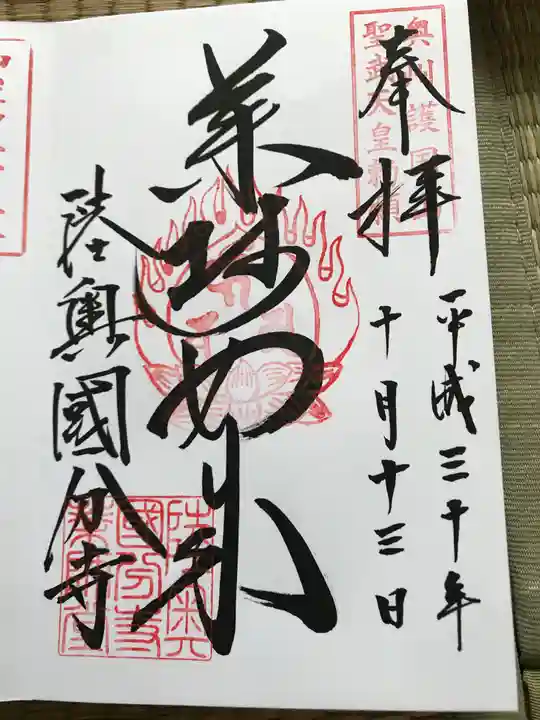 奉拝
平成三十年
十月十三日
薬師如来
陸奥國分寺
聖武天皇勅願
陸奥
國分寺